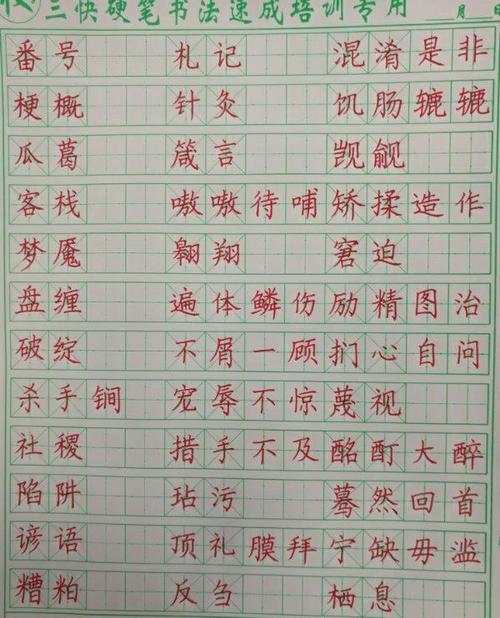 三快硬笔书法速成培训专用 月 日
番号 札记 混淆是非
梗概 针灸 饥肠辘辘
瓜葛 箴言 觊觎
客栈 嗷嗷待哺 矫揉造作
梦魇 翱翔 窘迫
盘缠 遍体鳞伤 励精图治
破绽 不屑一顾 扪心自问
杀手锏 宠辱不惊 蔑视
社稷 措手不及 酩酊大醉
陷阱 玷污 蓦然回首
谚语 顶礼膜拜 宁缺毋滥
糟粕 反刍 栖息